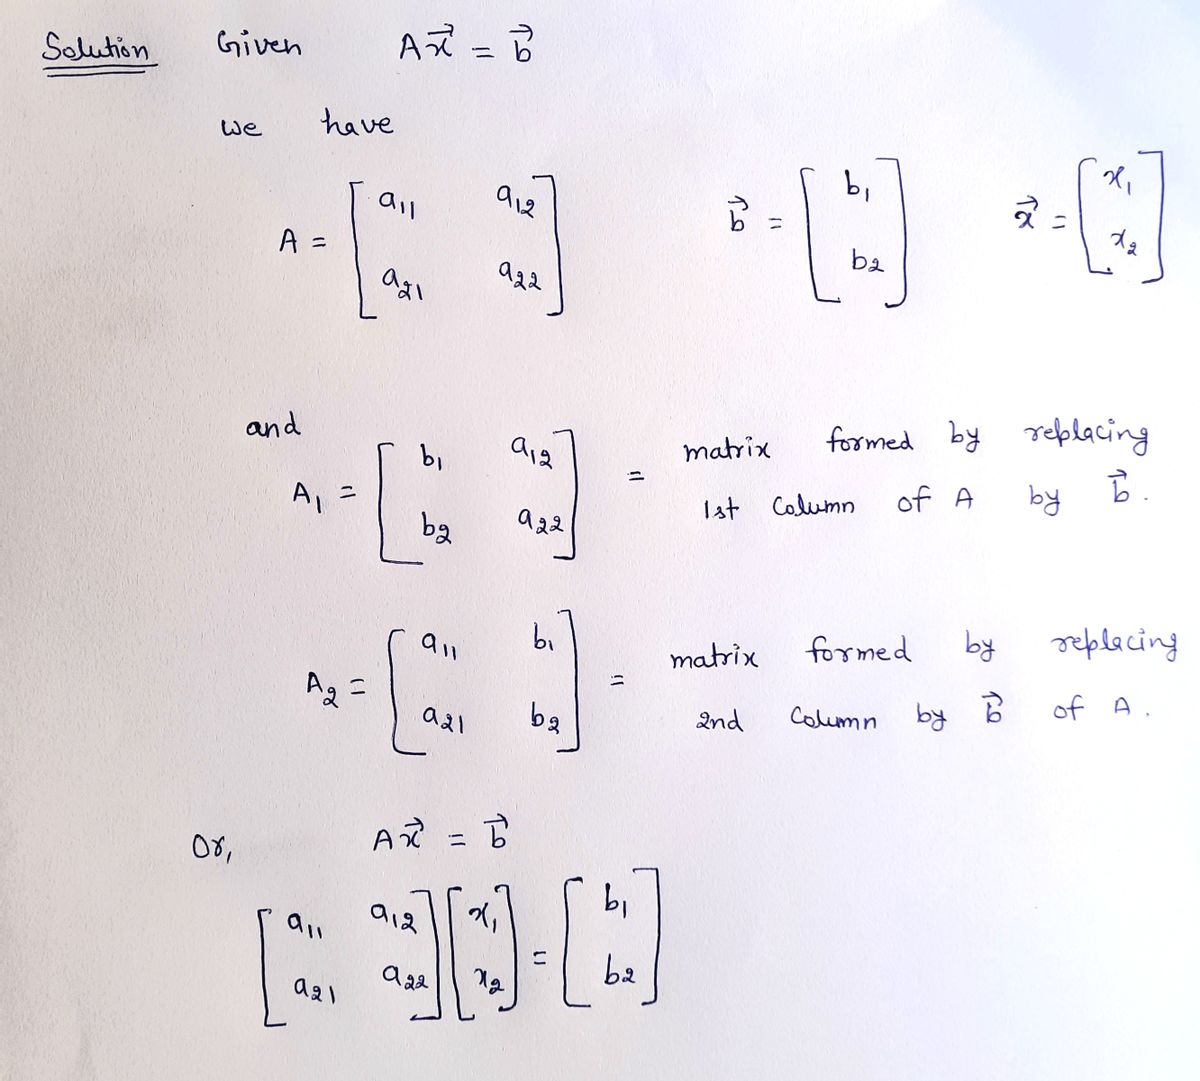 Solution Given A x⃗ = b⃗
we have
A = [ a11 a12 ; a21 a22 ] b⃗ = [ b1 ; b2 ] x⃗ = [ x1 ; x2 ]
and
A1 = [ b1 a12 ; b2 a22 ] = matrix formed by replacing
1st Column of A by b⃗.
A2 = [ a11 b1 ; a21 b2 ] = matrix formed by replacing
2nd Column by b⃗ of A.
Or, A x⃗ = b⃗
[ a11 a12 ; a21 a22 ] [ x1 ; x2 ] = [ b1 ; b2 ]